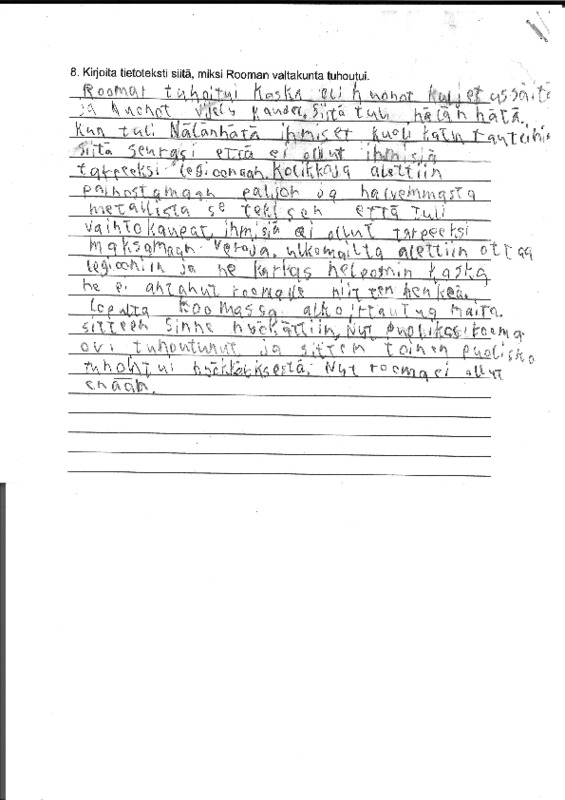 8. Kirjoita tietoteksti siitä, miksi Rooman valtakunta tuhoutui.
Roomar tuhoitui Koska oli huonot
ja huonot viels Siitä tuli nälän hätä.
kun tuli Nälänhätä ihmiset kuoli
siitä seurasi että ei ollut ihmisiä
tarpeeksi legioonaan, kolikkoja alettiin
painostamaan paljon ja halvemmasta
metallista se teki sen että tuli
vaihto kaupat, ihmisiä ei ollut tarpeeksi
maksamaan veroja, ulkomailta alettiin ottaa
legiooniin ja ne karkas helpomin koska
he ei antanut roomalle niitten henkeä.
lopulta Roomassa alkoi irtautua maita.
sitteen sinne hyökättiin, Nyt puolikas rooma
ovi tuhoutunut ja sittem toinen puolisko
tuhoitui hyökkäksestä, Nyt rooma ei ollut
enään.